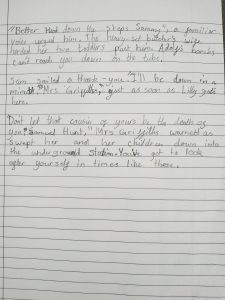 "Better Head down the steps Sammy", a familiar
voice urged him. The heavy-set butcher's wife
herded her two toddlers past him. Adolf's bombs
can't reach you down on the tube.
Sam smiled a thank-you. "I'll be down in a
minute, Mrs Griffiths, just as soon as Lilly gets
here.
Don't let that cousin of yours be the death of
you, Samuel Hunt," Mrs Griffiths warned as
swept her and her children down into
the underground station. You've got to look
after yourself in times like these.